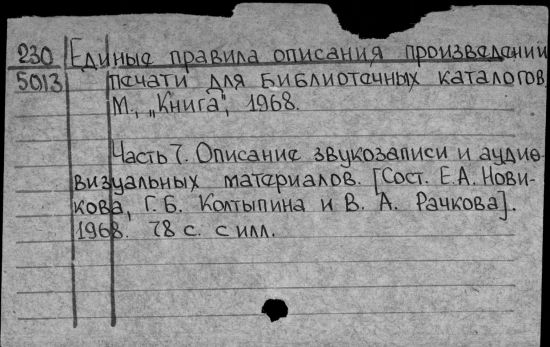 230 Единые правила описания произведений
5013 печати для библиотечных каталогов
М., „Книга", 1968.
Часть 7. Описание звукозаписи и аудио-
визуальных материалов. [Сост. Е.А. Нови-
кова, Г.Б. Колтыпина и В. А. Рачкова].
1968. 78 с. с илл.